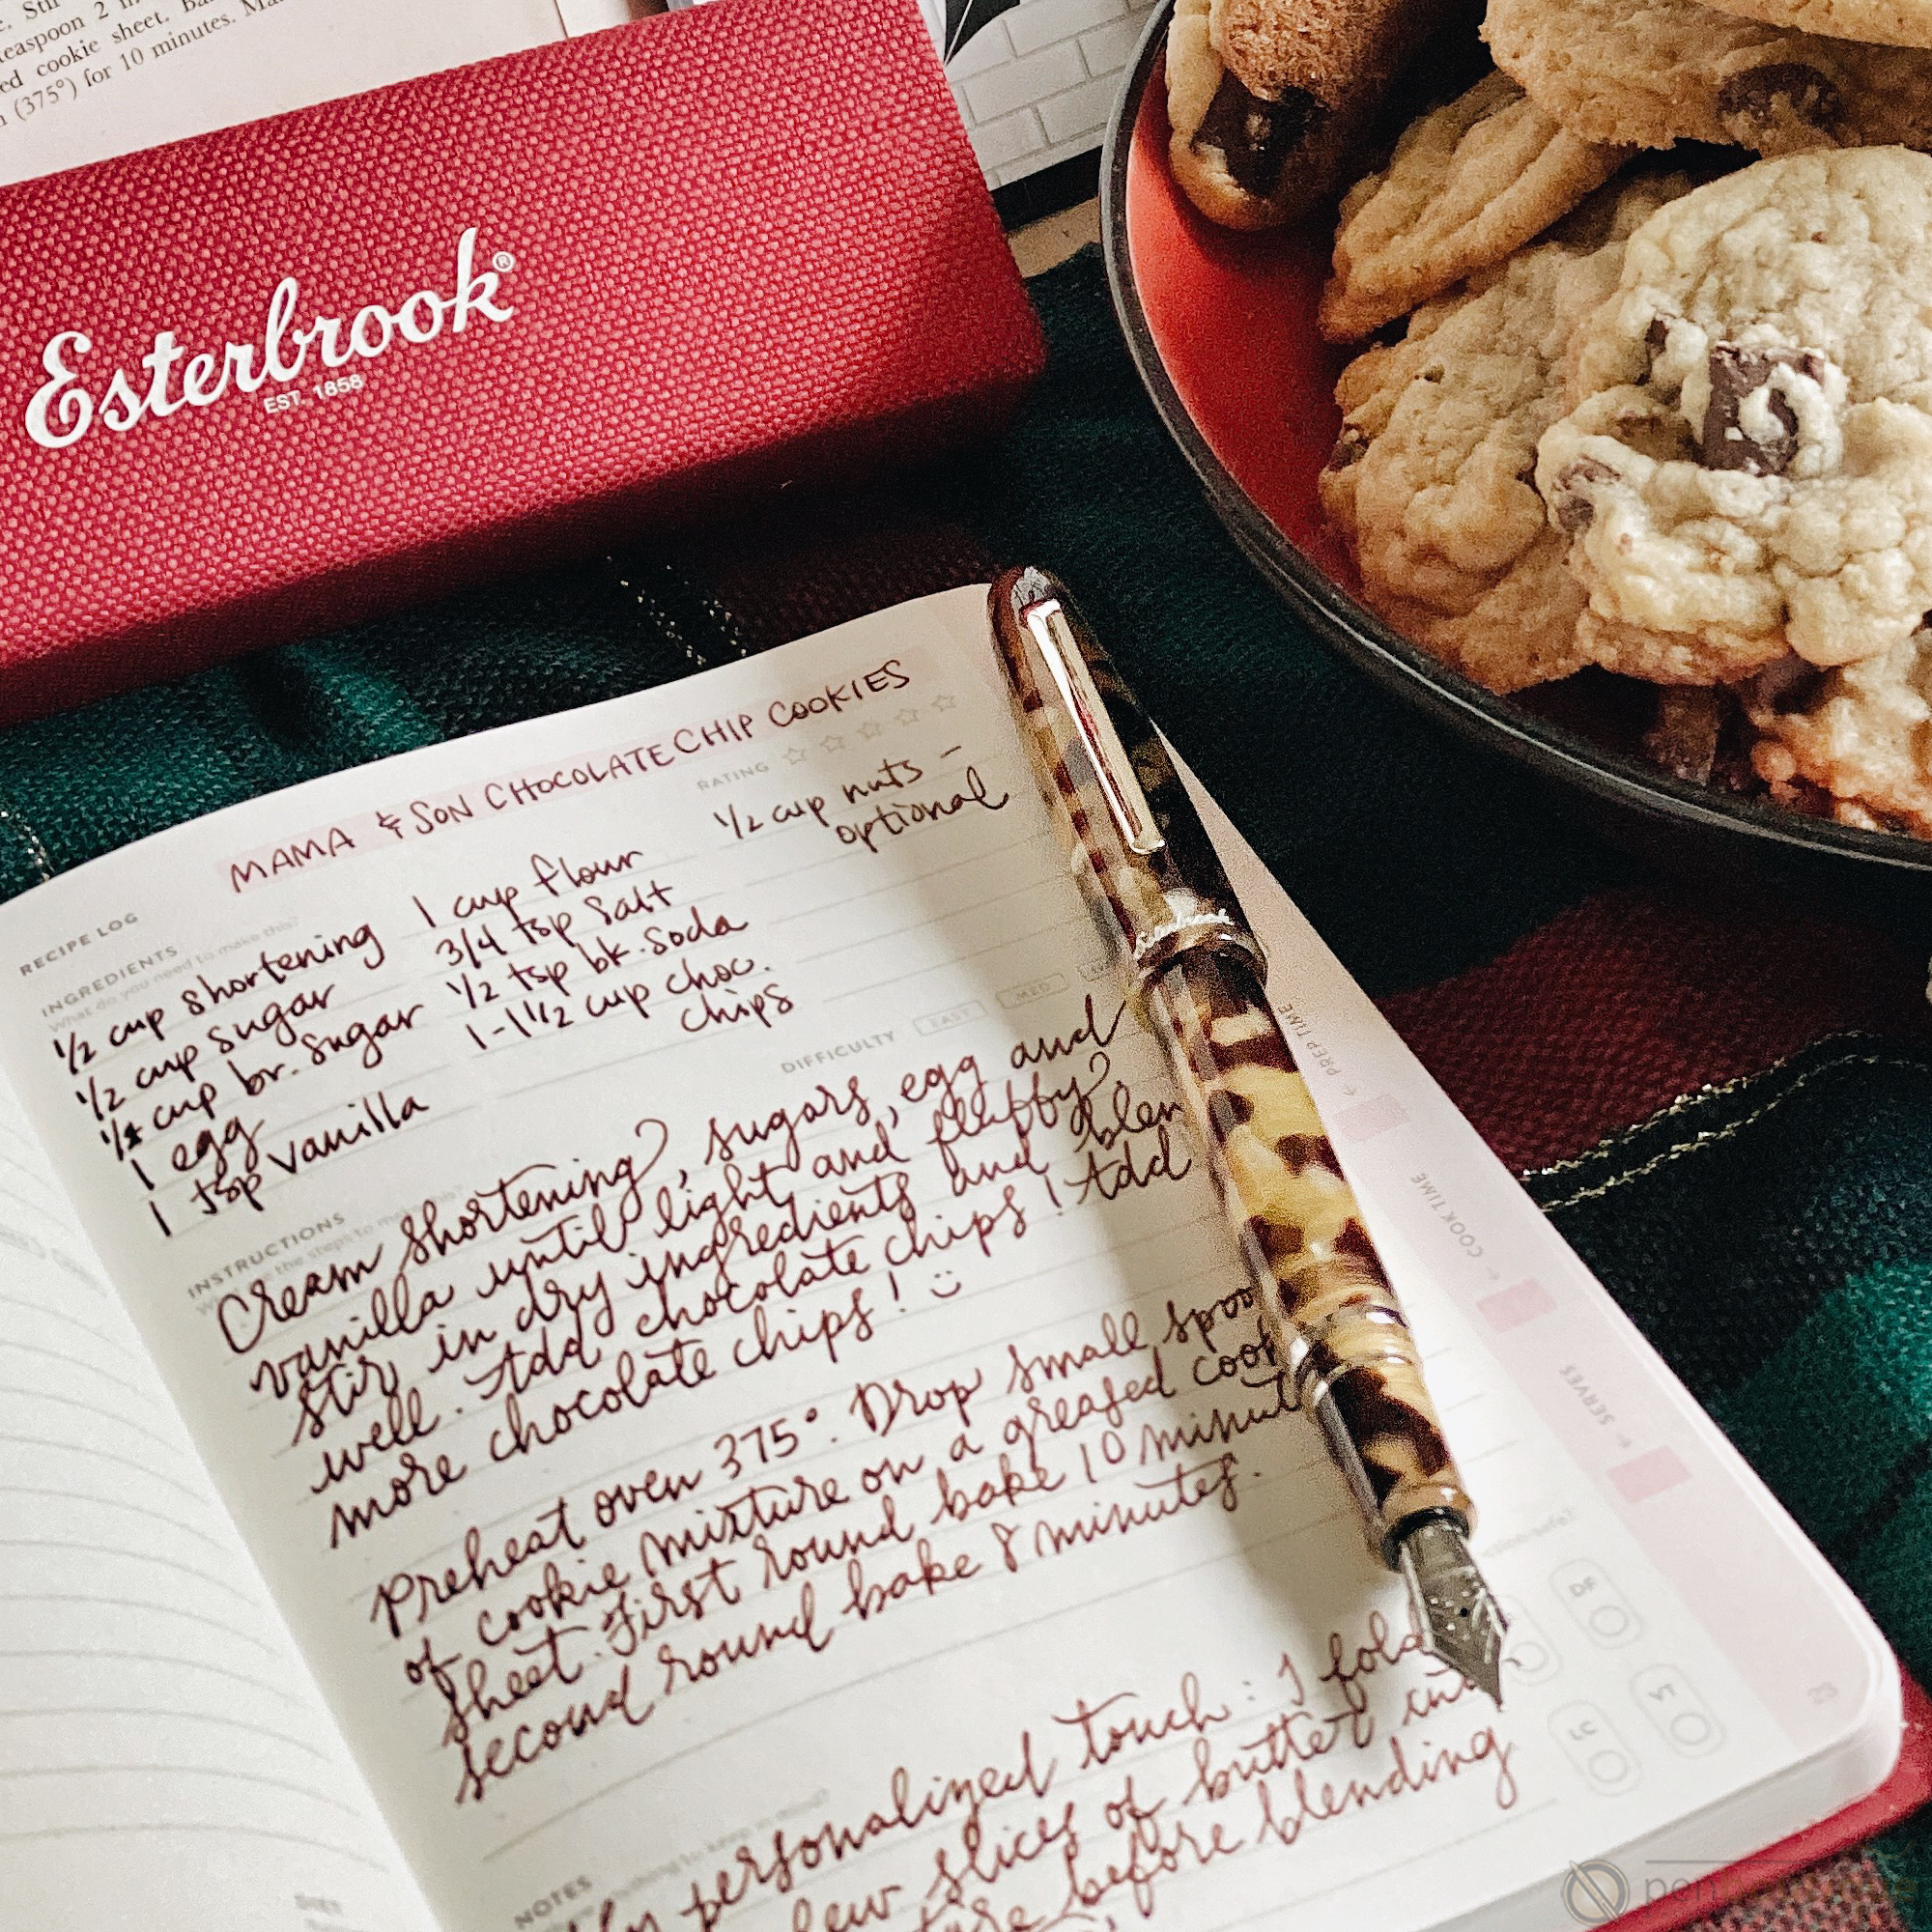 . Stir
teaspoon 2 in
ed cookie sheet. Ba
n (375°) for 10 minutes. Ma
Esterbrook®
EST. 1858
MAMA & SON CHOCOLATE CHIP COOKIES
RATING
RECIPE LOG
INGREDIENTS
What do you need to make this?
1/2 cup shortening
1/2 cup sugar
cup br. sugar
1 egg
1 tsp vanilla
1 cup flour
3/4 tsp salt
1/2 tsp bk. soda
1-1 1/2 cup choc.
chips
1/2 cup nuts -
optional
DIFFICULTY EASY MED
INSTRUCTIONS
the steps to make this?
Cream shortening, sugars, egg and
vanilla until light and fluffy
stir in dry ingredients and blen
well. Add chocolate chips! Add
more chocolate chips! :)
Preheat oven 375°. Drop small spoo
of cookie mixture on a greased cook
sheet. First round bake 10 minut
second round bake 8 minutes.
NOTES
personalized touch: I fold
few slices of butter
before blending
← PREP TIME
← COOK TIME
← SERVES
DF
LC
23
pen